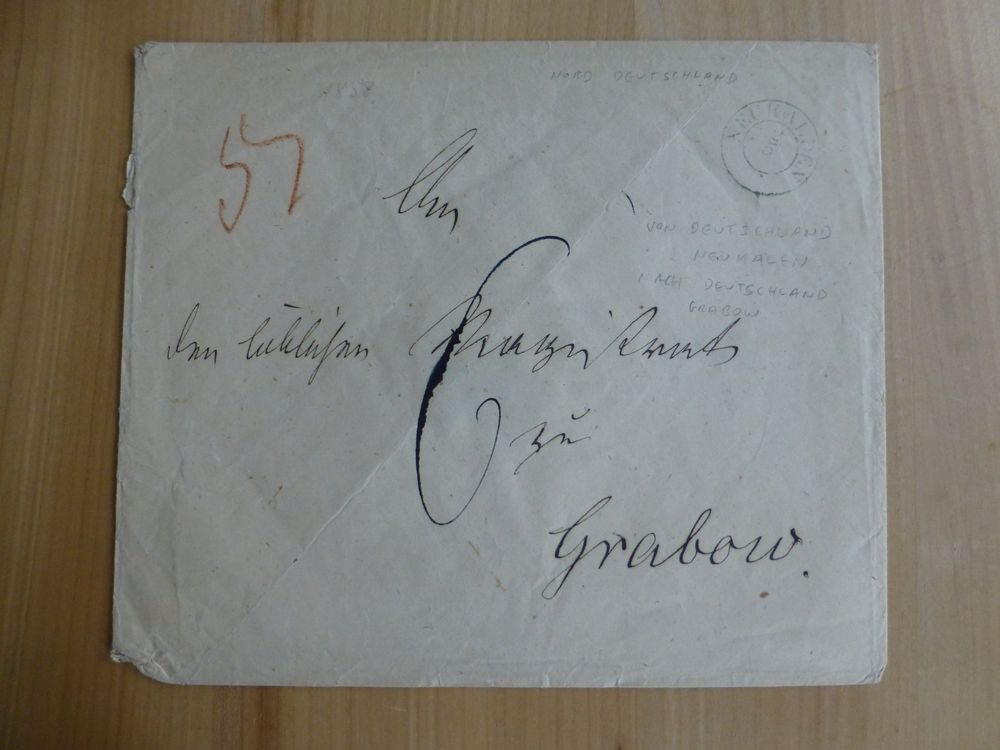 NORD DEUTSCHLAND
NEUKALEN
57
An
VON DEUTSCHLAND
NEUKALEN
NACH DEUTSCHLAND
GRABOW
den löblichen Magistrat
6
zu
Grabow.